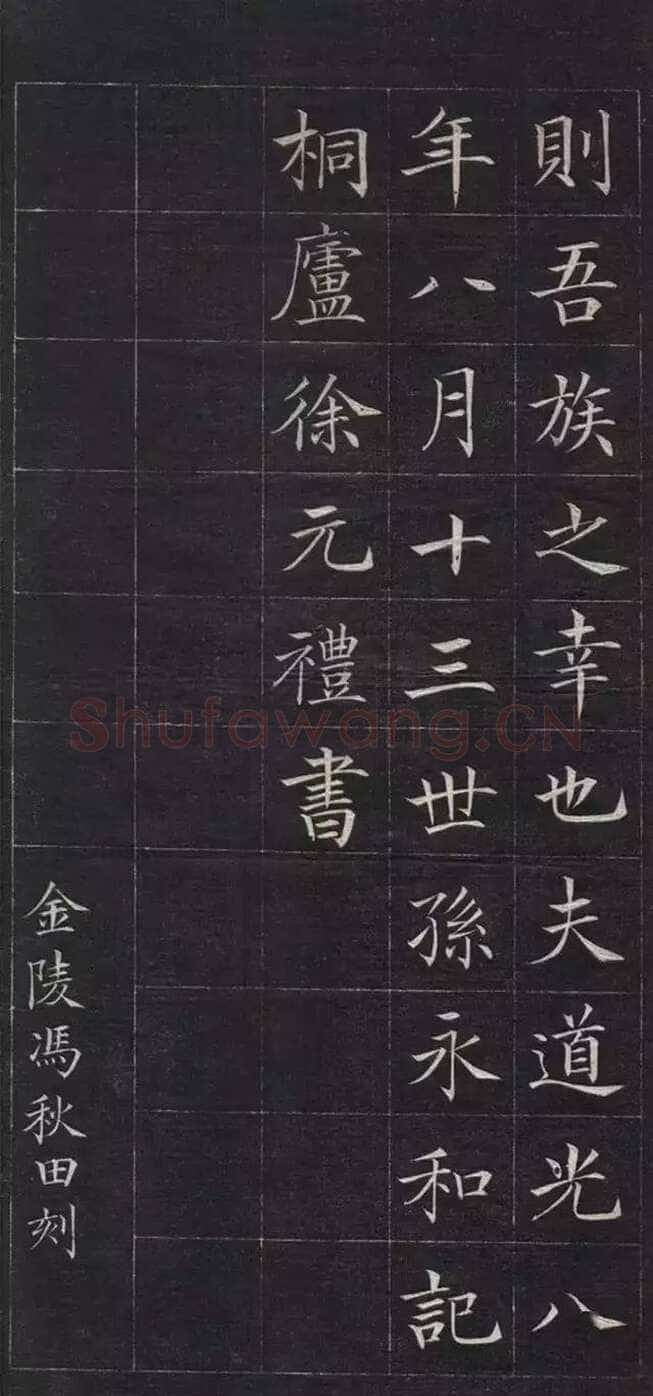 則吾族之幸也夫道光八
年八月十三世孫永和記
桐廬徐元禮書
金陵馮秋田刻
Shufawang.CN